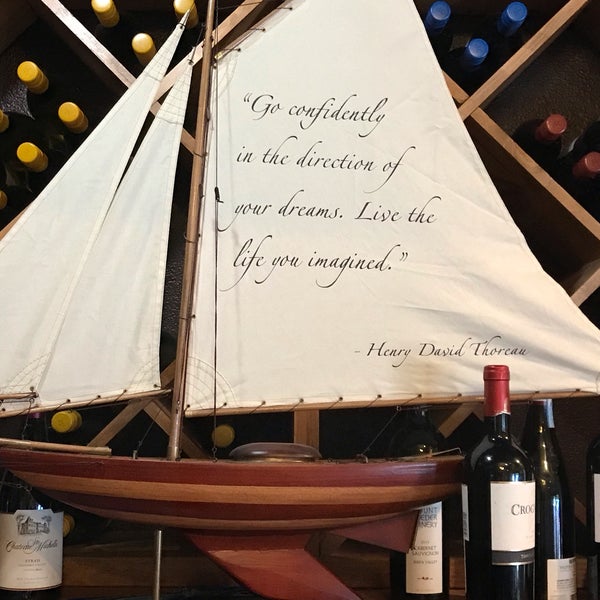 “Go confidently
in the direction of
your dreams. Live the
life you imagined.”
- Henry David Thoreau
Chateau Ste Michelle
SYRAH
CABERNET
SAUVIGNON
NAPA VALLEY
CROG